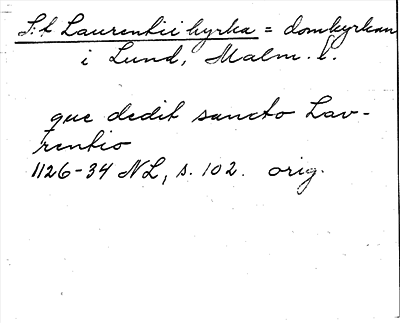 S:t Laurentii kyrka = domkyrkan
i Lund, Malm. l.
que dedit sancto Lav-
rentio
1126-34 NL, s. 102. orig.